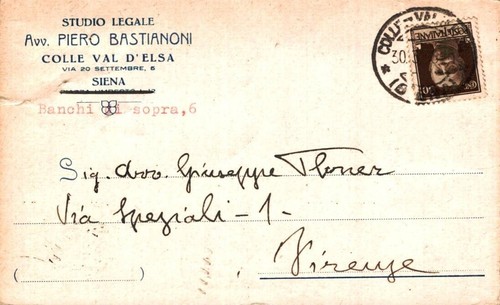 STUDIO LEGALE
Avv. PIERO BASTIANONI
COLLE VAL D'ELSA
VIA 20 SETTEMBRE, 6
SIENA
Banchi di sopra, 6
COLLE VAL
30
Sig. Avv. Giuseppe
Via Speziali - 1 -
Firenze